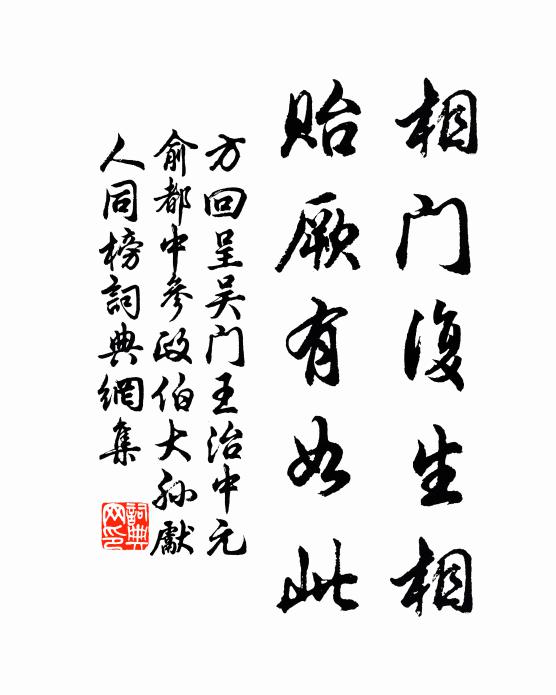 相门復生相
贻厥有如此
方回呈吴门王治中元
俞都中参政伯大孙獻
人同榜詞典網集
詞典网印